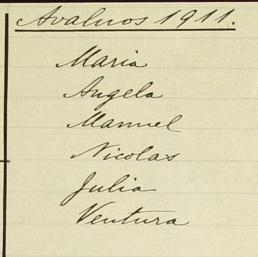 Avaluos 1911.
Maria
Angela
Manuel
Nicolas
Julia
Ventura